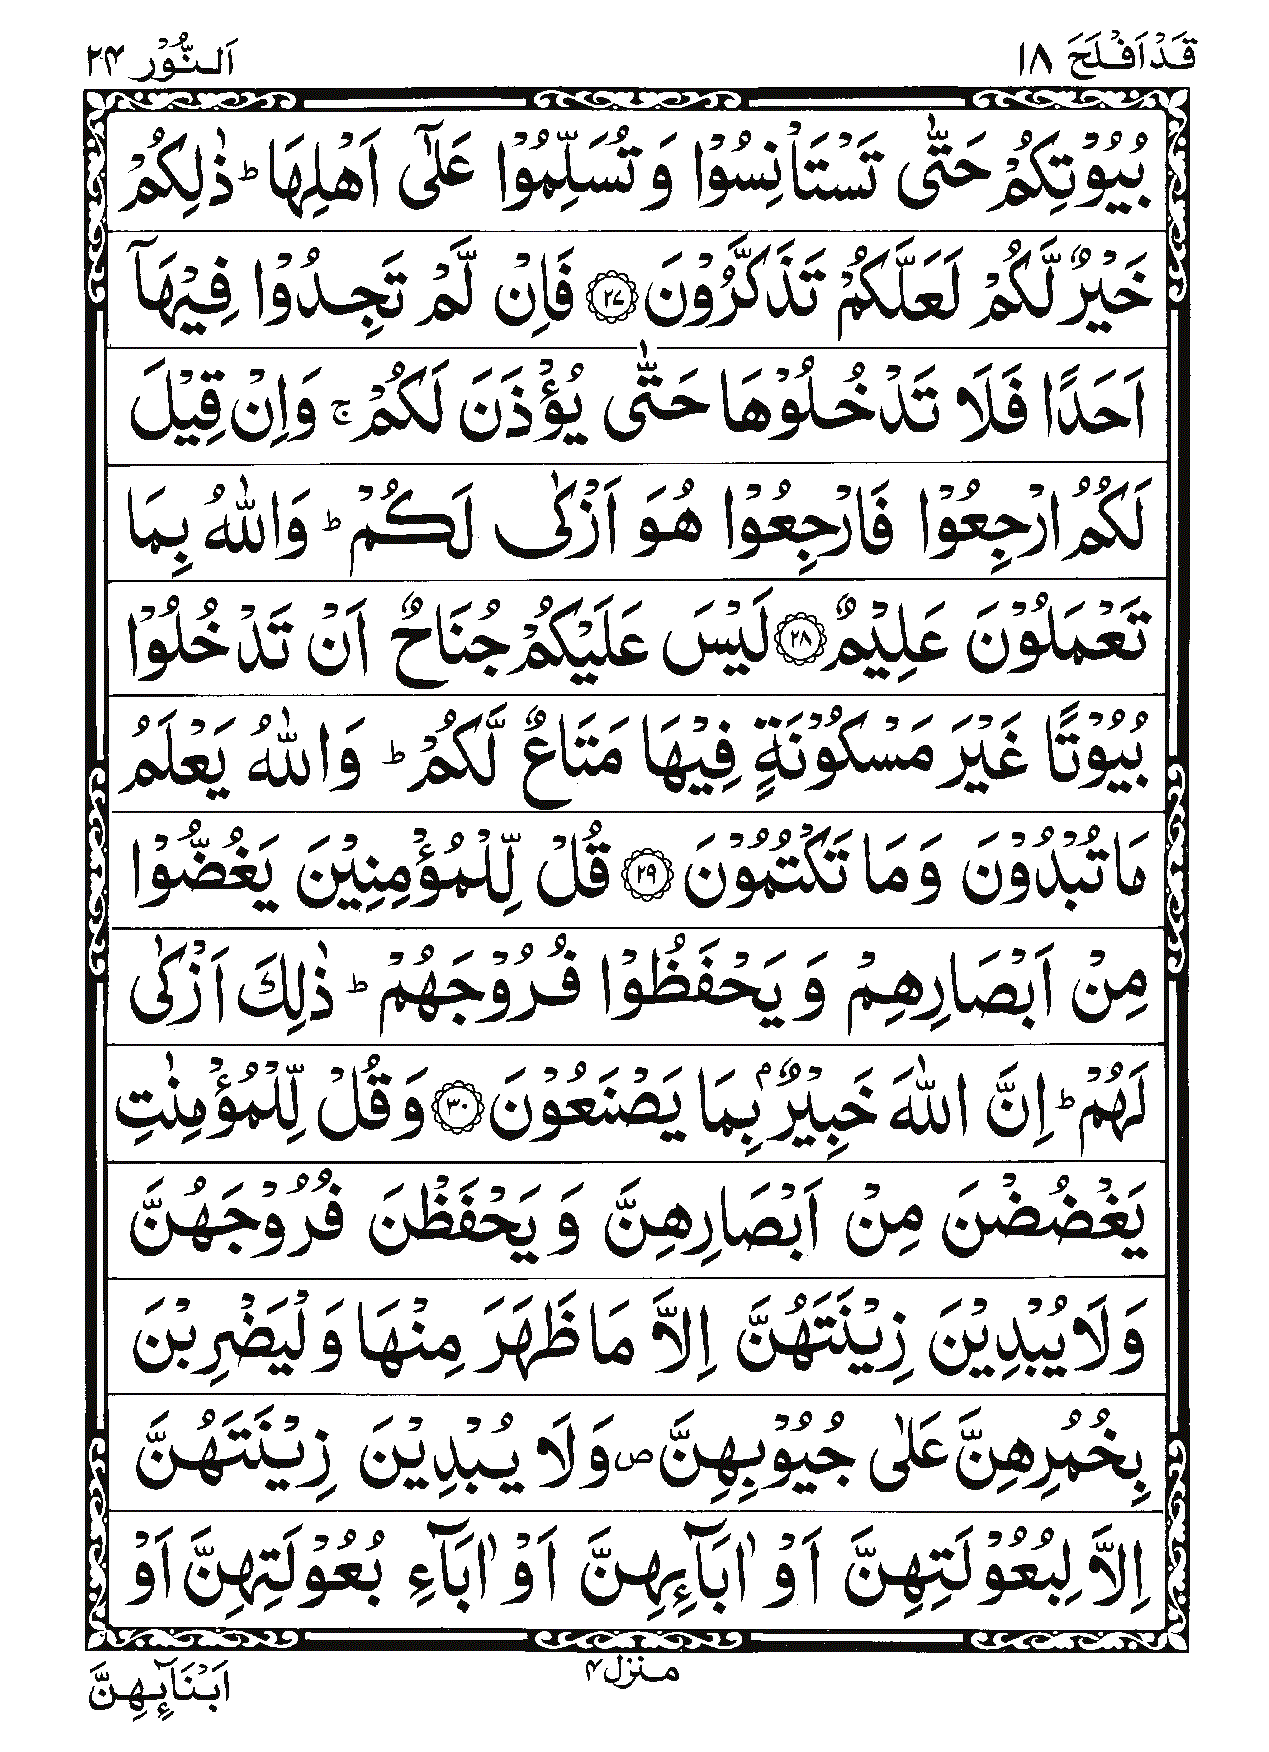 قَدْ اَفْلَحَ ۱۸
اَلنُّوْر ۲۴
بُيُوْتِكُمْ حَتّٰى تَسْتَاْنِسُوْا وَ تُسَلِّمُوْا عَلٰٓى اَهْلِهَا ؕ ذٰلِكُمْ
خَيْرٌ لَّكُمْ لَعَلَّكُمْ تَذَكَّرُوْنَ ﴿۲۷﴾ فَاِنْ لَّمْ تَجِدُوْا فِيْهَاۤ
اَحَدًا فَلَا تَدْخُلُوْهَا حَتّٰى يُؤْذَنَ لَكُمْ ۚ وَاِنْ قِيْلَ
لَكُمُ ارْجِعُوْا فَارْجِعُوْا هُوَ اَزْكٰى لَكُمْ ؕ وَاللّٰهُ بِمَا
تَعْمَلُوْنَ عَلِيْمٌ ﴿۲۸﴾ لَيْسَ عَلَيْكُمْ جُنَاحٌ اَنْ تَدْخُلُوْا
بُيُوْتًا غَيْرَ مَسْكُوْنَةٍ فِيْهَا مَتَاعٌ لَّكُمْ ؕ وَاللّٰهُ يَعْلَمُ
مَا تُبْدُوْنَ وَمَا تَكْتُمُوْنَ ﴿۲۹﴾ قُلْ لِّلْمُؤْمِنِيْنَ يَغُضُّوْا
مِنْ اَبْصَارِهِمْ وَ يَحْفَظُوْا فُرُوْجَهُمْ ؕ ذٰلِكَ اَزْكٰى
لَهُمْ ؕ اِنَّ اللّٰهَ خَبِيْرٌۢ بِمَا يَصْنَعُوْنَ ﴿۳۰﴾ وَقُلْ لِّلْمُؤْمِنٰتِ
يَغْضُضْنَ مِنْ اَبْصَارِهِنَّ وَ يَحْفَظْنَ فُرُوْجَهُنَّ
وَلَا يُبْدِيْنَ زِيْنَتَهُنَّ اِلَّا مَا ظَهَرَ مِنْهَا وَلْيَضْرِبْنَ
بِخُمُرِهِنَّ عَلٰى جُيُوْبِهِنَّ ۪ وَلَا يُبْدِيْنَ زِيْنَتَهُنَّ
اِلَّا لِبُعُوْلَتِهِنَّ اَوْ اٰبَآئِهِنَّ اَوْ اٰبَآءِ بُعُوْلَتِهِنَّ اَوْ
منزل ۴
اَبْنَآئِهِنَّ